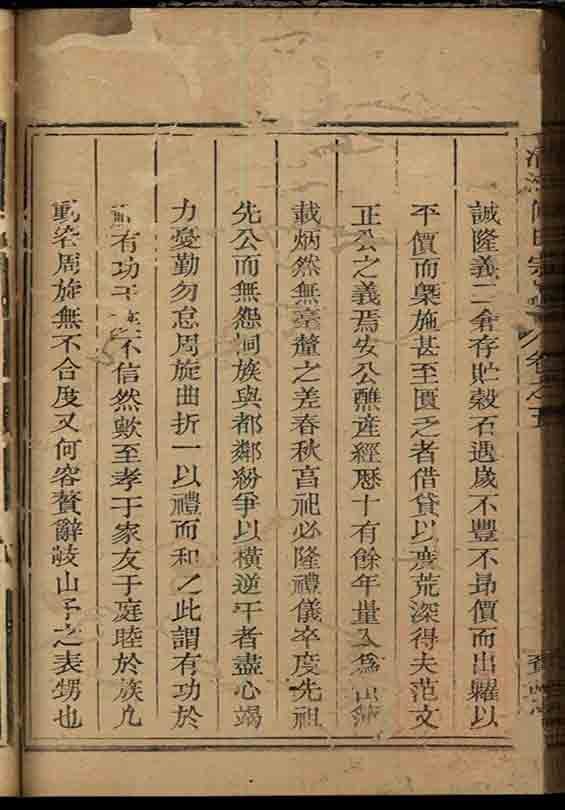 誠隆義二倉存貯穀石遇歲不豐不昻價而出糶以
平價而槩施甚至匱乏者借貸以度荒深得夫范文
正公之義焉安公醮產經歴十有餘年量入為出錙
載炳然無毫釐之差春秋亯祀必隆禮儀卒度先祖
先公而無怨恫族與都鄰紛爭以橫逆干者盡心竭
力憂勤勿怠周旋曲折一以禮而和之此謂有功於
有功于不信然歟至孝于家友于庭睦於族凡
動容周旋無不合度又何容贅辭歧山予之表甥也
卷之五